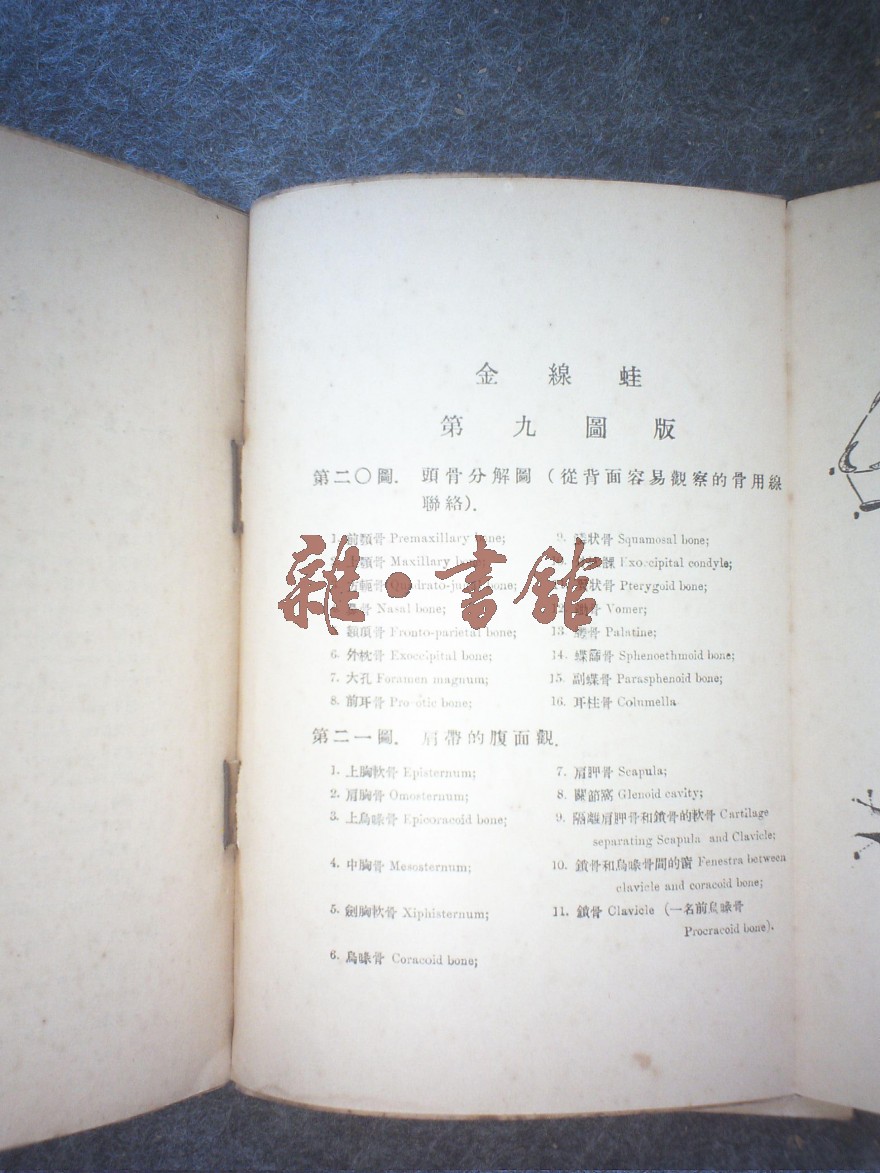 金線蛙
第九圖版
第二〇圖. 頭骨分解圖 (從背面容易觀察的骨用線
聯絡).
1. 前顎骨 Premaxillary bone;
Maxillary
bone;
骨 Nasal bone;
骨 Fronto-parietal bone;
6. 外枕骨 Exoccipital bone;
7. 大孔 Foramen magnum;
8. 前耳骨 Pro-otic bone;
9. 狀骨 Squamosal bone;
Exoccipital condyle;
狀骨 Pterygoid bone;
骨 Vomer;
13. 骨 Palatine;
14. 蝶篩骨 Sphenoethmoid bone;
15. 副蝶骨 Parasphenoid bone;
16. 耳柱骨 Columella
第二一圖. 肩帶的腹面觀.
1. 上胸軟骨 Episternum;
2. 肩胸骨 Omosternum;
3. 上烏喙骨 Epicoracoid bone;
4. 中胸骨 Mesosternum;
5. 劍胸軟骨 Xiphisternum;
6. 烏喙骨 Coracoid bone;
7. 肩胛骨 Scapula;
8. 關節窩 Glenoid cavity;
9. 隔離肩胛骨和鎖骨的軟骨 Cartilage
separating Scapula and Clavicle;
10. 鎖骨和烏喙骨間的窗 Fenestra between
clavicle and coracoid bone;
11. 鎖骨 Clavicle (一名前烏喙骨
Procracoid bone).
雜·書館